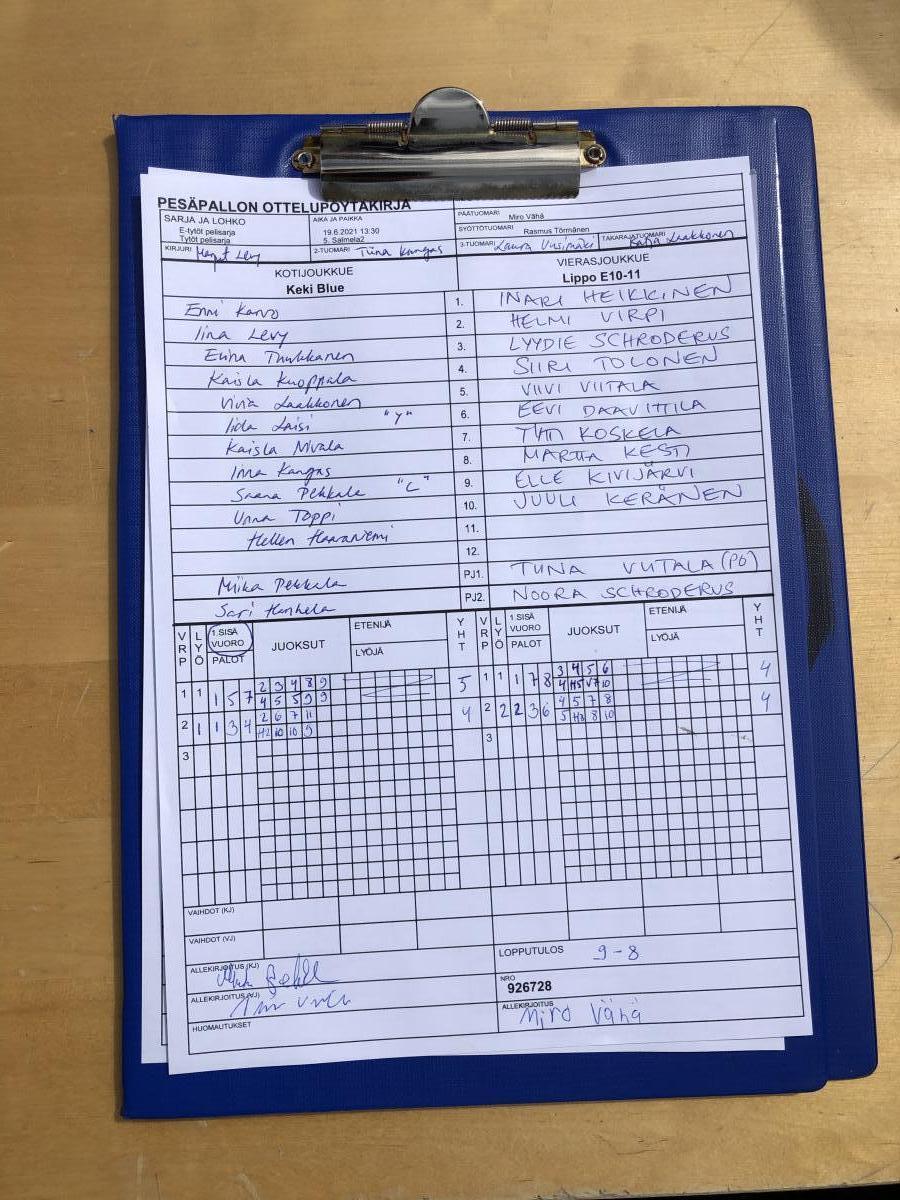 PESÄPALLON OTTELUPÖYTÄKIRJA
SARJA JA LOHKO
E-tytöt pelisarja
Tytöt pelisarja
AIKA JA PAIKKA
19.6.2021 13:30
5. Salmela2
PÄÄTUOMARI Miro Vähä
SYÖTTÖTUOMARI Rasmus Törmänen
KIRJURI Margit Levy
2-TUOMARI Tiina Kangas
3-TUOMARI Laura Uusimäki
TAKARAJATUOMARI Katja Laakkonen
KOTIJOUKKUE
Keki Blue
VIERASJOUKKUE
Lippo E10-11
Enni Karvo 1. INARI HEIKKINEN
Iina Levy 2. HELMI VIRPI
Eliina Tuukkanen 3. LYYDIE SCHRODERUS
Kaisla Kuoppala 4. SIIRI TOLONEN
Viivi Laakkonen 5. VIIVI VIITALA
Iida Laisi "Y" 6. EEVI DAAVITTILA
Kaisla Nivala 7. KOSKELA
Inna Kangas 8. MARTTA KESTI
Saana Pekkala "L" 9. ELLE KIVIJÄRVI
Unna Toppi 10. JUULI KERÄNEN
Hellen Haaraniemi 11.
12.
Miika Pekkala PJ1. TIINA VIITALA (PÖ)
Sari Hanhela PJ2. NOORA SCHRODERUS
VRP LYÖ 1.SISÄ VUORO PALOT JUOKSUT ETENIJÄ LYÖJÄ YHT VRP LYÖ 1.SISÄ VUORO PALOT JUOKSUT ETENIJÄ LYÖJÄ YHT
1 1 1 5 7 2 3 4 8 9 5 1 1 1 7 8 3 4 5 6 4
4 5 5 9 9 4 H5 V7 10
2 1 1 3 4 2 6 7 11 4 2 2 2 3 6 4 5 7 8 4
H2 10 10 9 5 H3 8 10
3 3
VAIHDOT (KJ)
VAIHDOT (VJ)
ALLEKIRJOITUS (KJ)
LOPPUTULOS 9-8
ALLEKIRJOITUS (VJ)
NRO
926728
HUOMAUTUKSET
ALLEKIRJOITUS
Miro Vähä